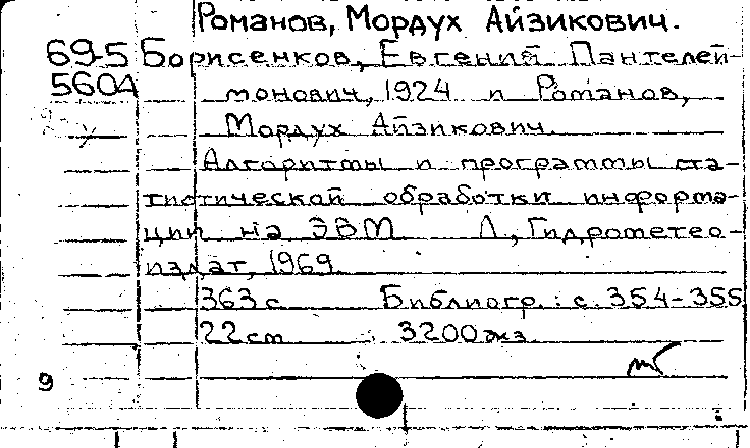 Романов, Мордух Айзикович.
69-5 Борисенков, Евгений Пантелей-
5604 монович, 1924 и Романов,
Мордух Айзикович.
Алгоритмы и программы ста-
тистической обработки информа-
ции на ЭВМ Л., Гидрометео-
издат, 1969.
363 с Библиогр.: с. 354-355
22 см 3200 экз.
9